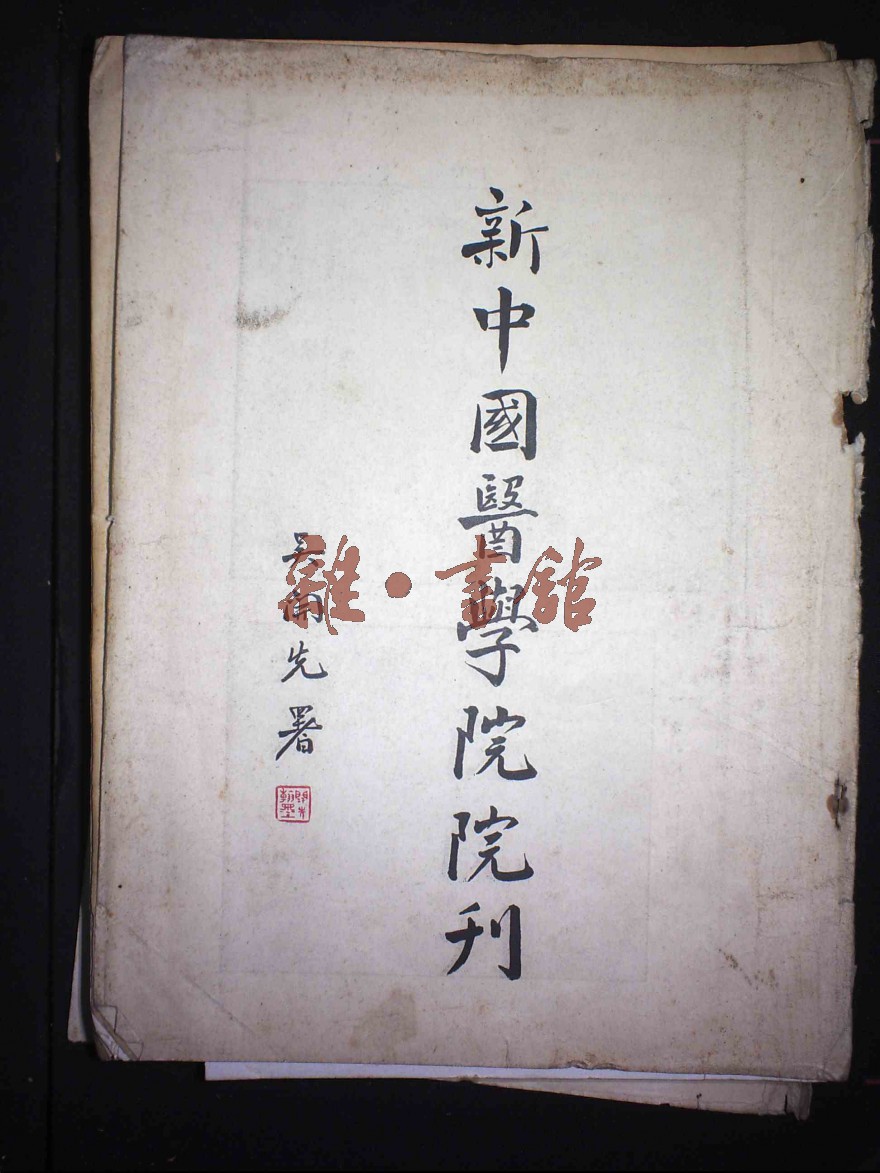 新中國醫學院院刊
吳開先署
雜·書館